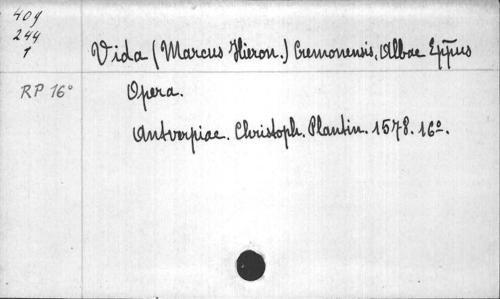 409
244
1
Vida (Marcus Hieron.) Cremonensis, Albae Ep̅pus
RP 16°
Opera.
Antverpiae. Christoph. Plantin. 1578. 16º.